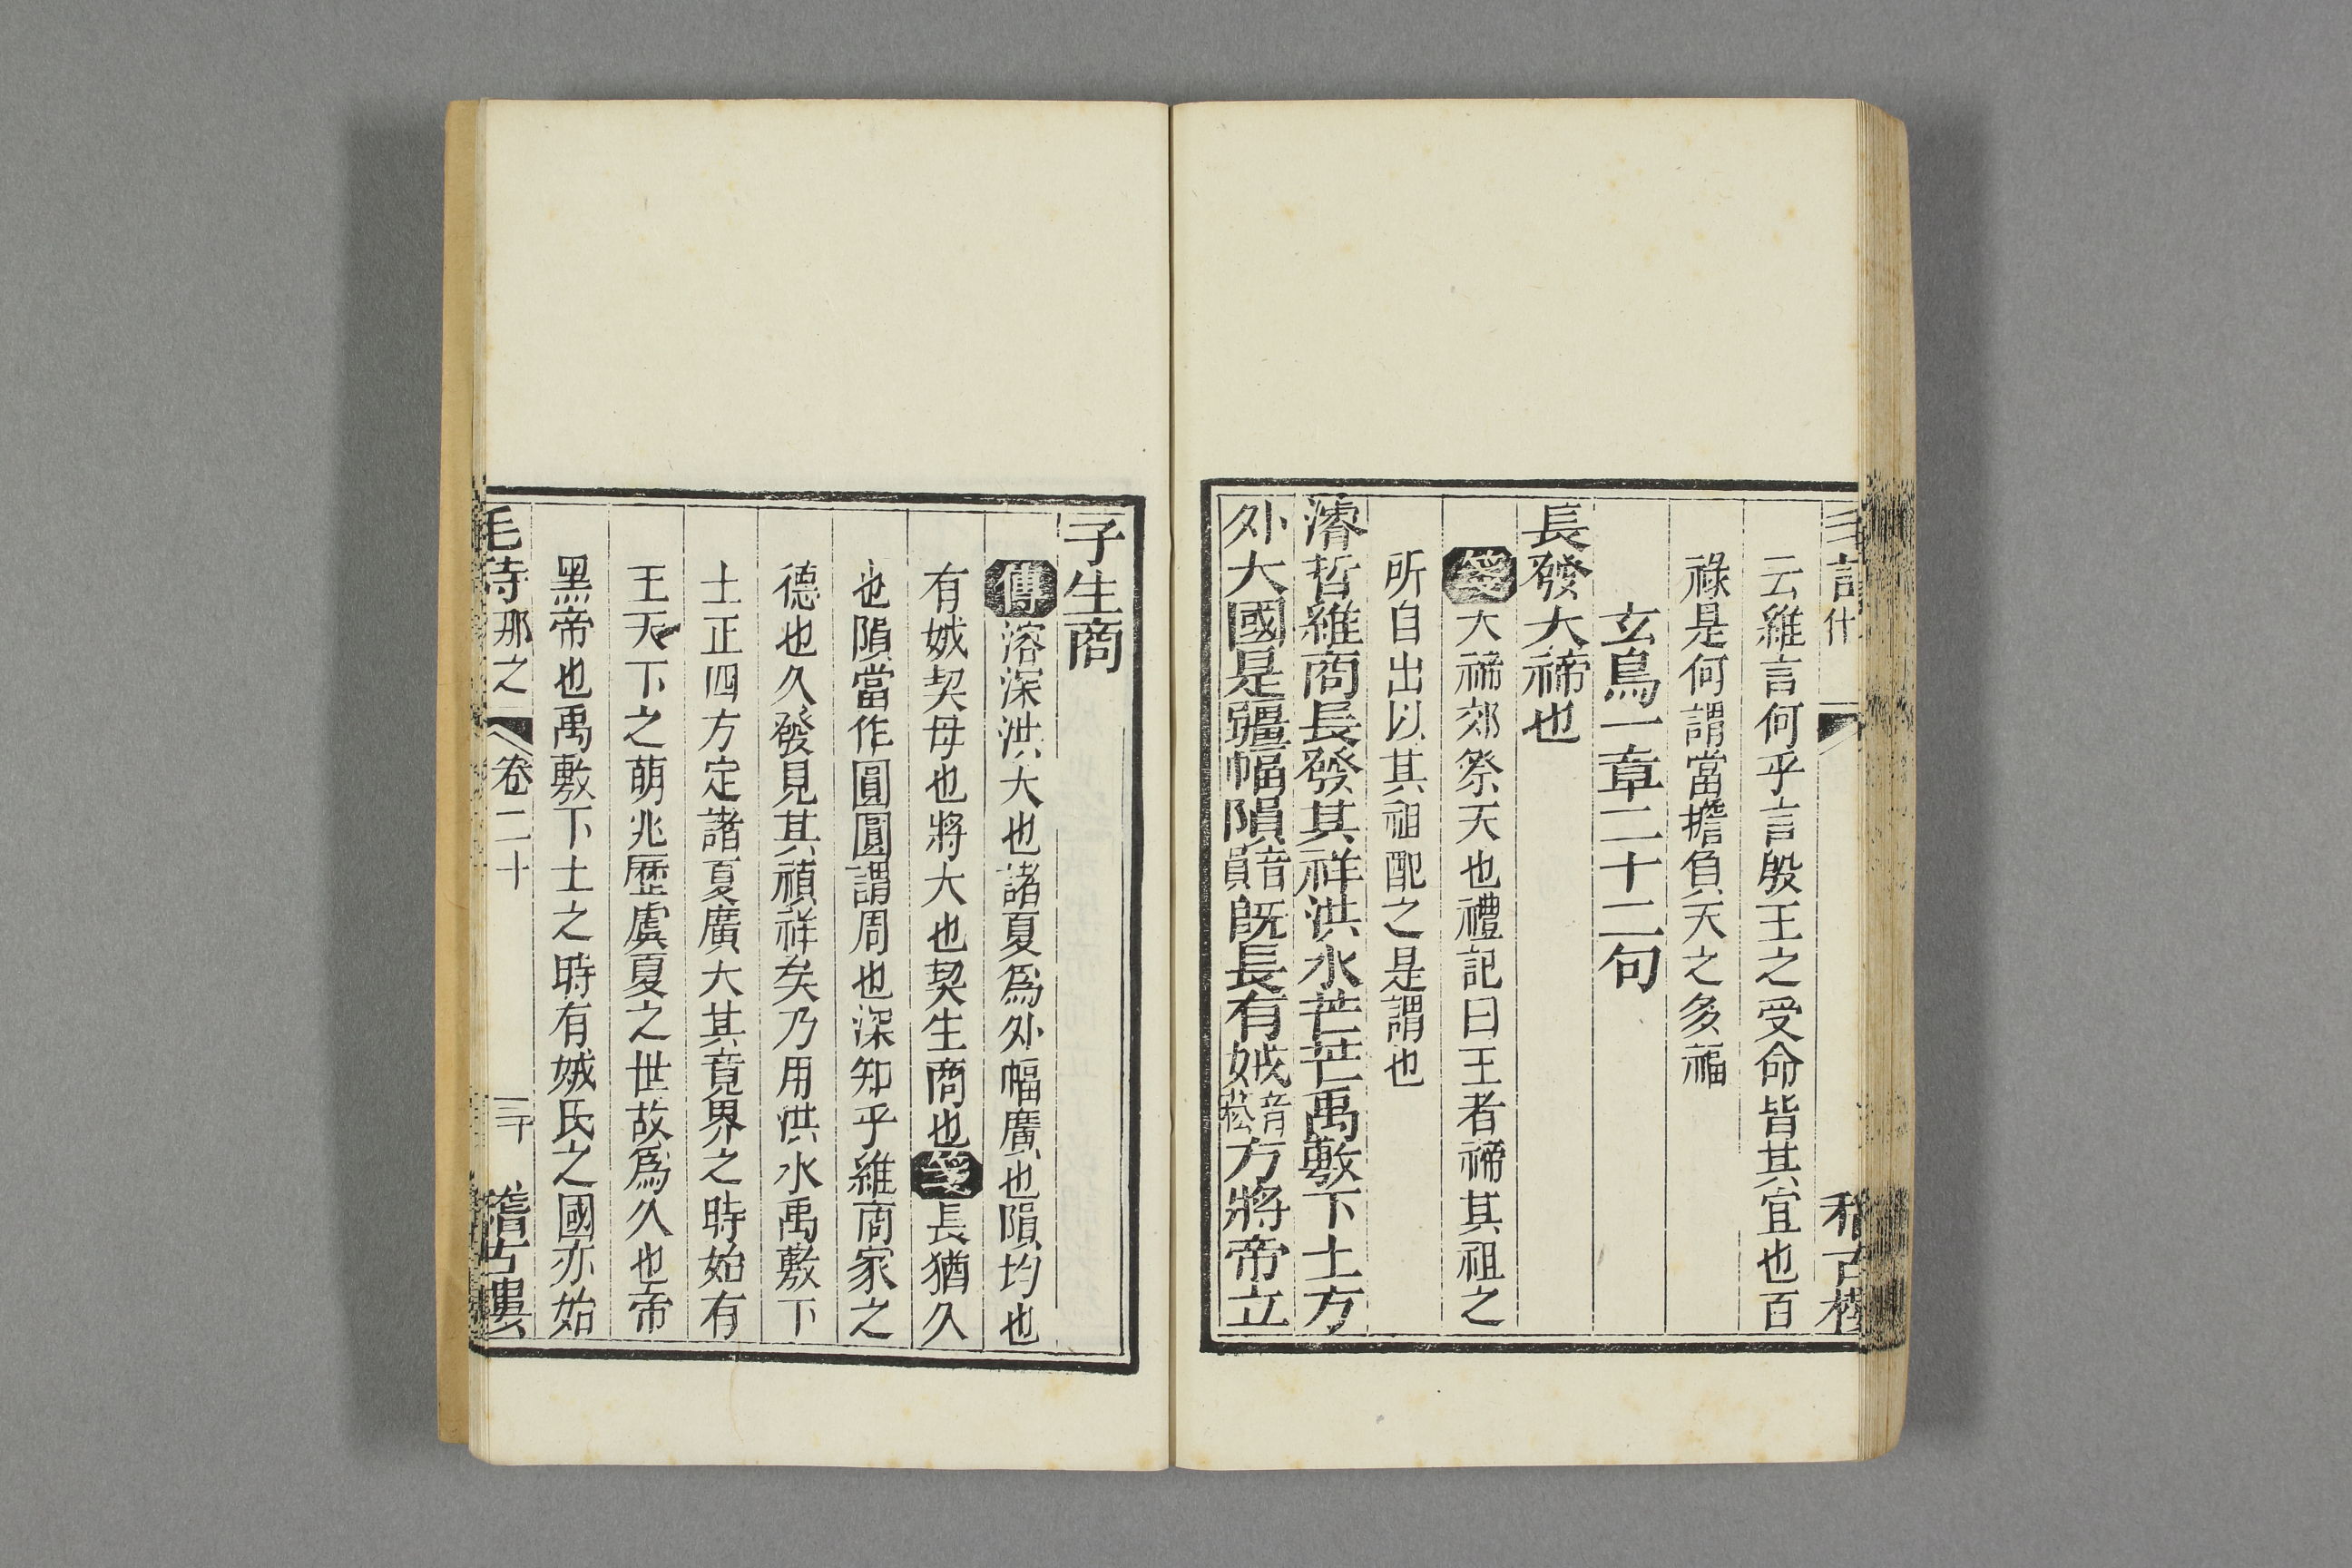 云維言何乎言殷王之受命皆其宜也百
祿是何謂當擔負天之多福
玄鳥一章二十二句
長發大禘也
箋大禘郊祭天也禮記曰王者禘其祖之
所自出以其祖配之是謂也
濬哲維商長發其祥洪水芒芒禹敷下土方
外大國是疆幅隕音員旣長有娀音菘方將帝立
子生商
傳濬深洪大也諸夏爲外幅廣也隕均也
有娀契母也將大也契生商也箋長猶久
也隕當作圓圓謂周也深知乎維商家之
德也久發見其禎祥矣乃用洪水禹敷下
土正四方定諸夏廣大其竟界之時始有
王天下之萌兆歷虞夏之世故爲久也帝
黑帝也禹敷下土之時有娀氏之國亦始
毛詩那之 卷二十 三十 稽古樓